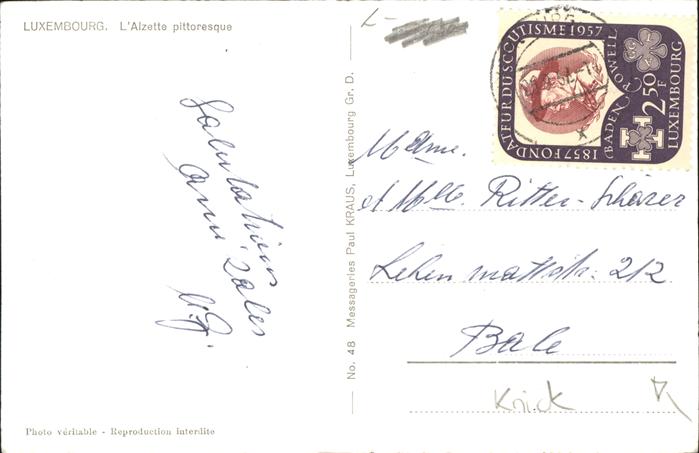 LUXEMBOURG. L'Alzette pittoresque
Salutations
amicales
No. 48 Messageries Paul KRAUS, Luxembourg Gr. D.
1857 FONDATEUR DU SCOUTISME 1957
BADEN POWELL
2.50 F
LUXEMBOURG
Mdme.
et Mlle. Ritter-Schärer
Lehenmattstr. 212
Bale
Knick
Photo véritable - Reproduction interdite